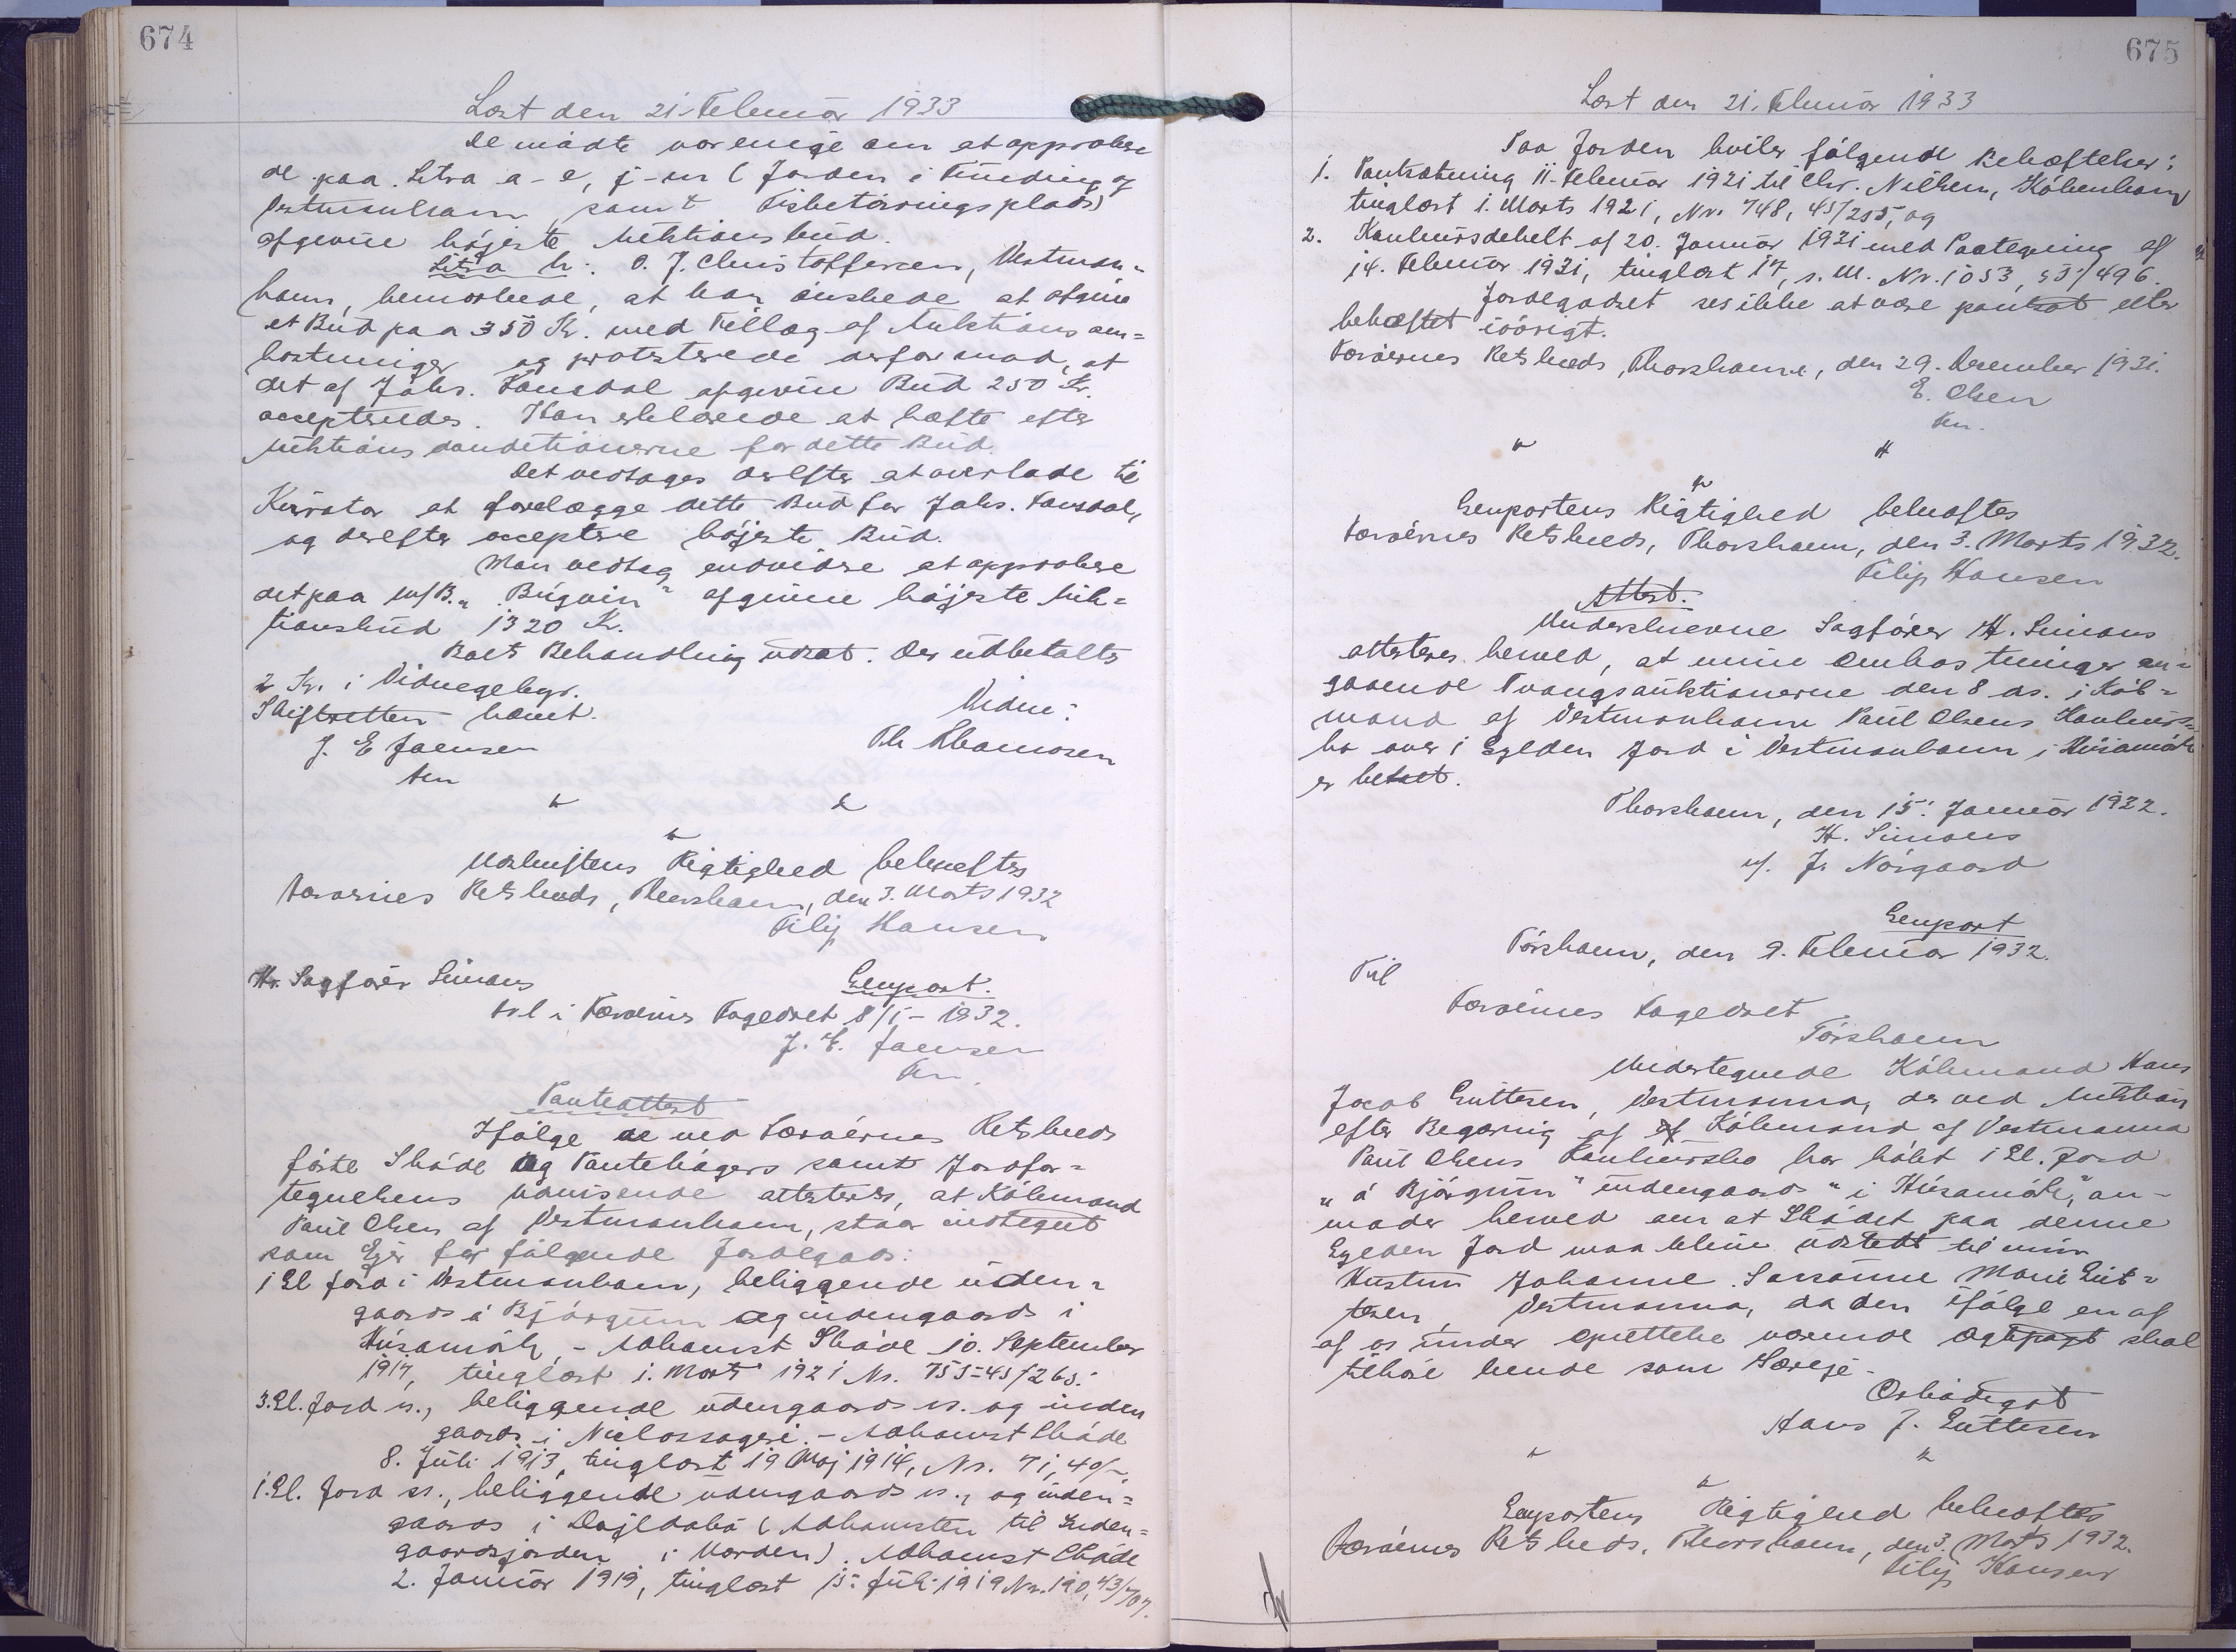 674
Læst den 21. Februar 1933
De mødte var enige om at approbere
de paa Litra a-e, j-m (Jorden i
Vestmanhavn, samt Fisketørringsplads)
afgivne højeste Auktionsbud.
Litra h: O. J. Christoffersen, Vestman-
havn, bemærkede, at han ønskede at afgive
et Bud paa 350 Kr. med Tillæg af Auktionsom-
kostninger og protesterede derfor mod, at
det af Johs. Fansdal afgivne Bud 250 Kr.
accepteredes. Han erklærede at hæfte efter
Auktionskonditionerne for dette Bud.
Det vedtoges derefter at overlade til
Kurator at forelægge dette Bud for Johs. Fansdal,
og derefter acceptere højeste Bud.
Man vedtog endvidere at approbere
det paa M/B. "Búgvin" afgivne højeste Auk-
tionsbud 1320 Kr.
Boets Behandling udsat. Der udbetaltes
2 Kr. i Vidnegebyr.
Skifteretten hævet. Vidne:
J. E. Joensen Th. Thomasen
Km
Udskriftens Rigtighed bekræftes
Færøernes Retskreds, Thorshavn, den 3. Marts 1932
Filip Hansen
Hr. Sagfører Simans Genpart.
Frl. i Færøernes Fogedret 8/1-1932.
J. E. Joensen
Km.
Panteattest
Ifølge de ved Færøernes Retskreds
førte Skøde og Pantebøgers samt Jordfor-
tegnelsens Udvisende attesteres, at Købmand
Paul Olsen af Vestmanhavn, staar indtegnet
som Ejer for følgende Jordegods:
1 Gl. Jord i Vestmanhavn, beliggende uden-
gaards á Bjørgum og indengaards i
Húsamørk, - Adkomst Skøde 10. September
1917, tinglæst 1. Marts 1921 Nr. 755-45/263.
3. Gl. Jord s., beliggende udengaards s. og inden
gaards i Nielassagerði. - Adkomst Skøde
8. Juli 1913, tinglæst 19 Maj 1914, Nr. 71, 40/-.
1. Gl. Jord ss., beliggende udengaards ss., og inden-
gaards i (Adkomsten til Inden-
gaardsjorden i Orden). Adkomst Skøde
2. Januar 1919, tinglæst 15. Juli 1919 Nr. 190, 43/707.
675
Læst den 21. Februar 1933
Paa Jorden hviler følgende Behæftelser:
1. Pantsætning 11. Februar 1921 til Chr. Nielsen, København
tinglæst 1. Marts 1921, Nr. 748, 45/255, og
2. Konkursdekret af 20. Januar 1931 med Paategning af
14. Februar 1931, tinglæst 17, s. M. Nr. 1053, 53/496.
Jordegodset ses ikke at være pantsat eller
behæftet iøvrigt.
Færøernes Retskreds, Thorshavn, den 29. December 1931.
E. Olsen
Km.
Genpartens Rigtighed bekræftes
Færøernes Retskreds, Thorshavn, den 3. Marts 1932.
Filip Hansen
Attest.
Underskrevne Sagfører H. Simans
attesterer herved, at mine Omkostninger an-
gaaende Tvangsauktionerne den 8 ds. i Køb-
mand af Vestmanhavn Paul Olsens Konkurs-
bo over 1 Gylden Jord i Vestmanhavn i Húsamørk
er betalt.
Thorshavn, den 15. Januar 1932.
H. Simans
e/. J. Nórgaard
Genpart
Tórshavn, den 9. Februar 1932.
Til
Færøernes Fogedret
Tórshavn
Undertegnede Købmand Hans
Jacob Guttesen, Vestmanna, der ved Auktion
efter Begæring af Købmand af Vestmanna
Paul Olsens Konkursbo har købt 1 Gl. Jord
"á Bjørgum" indengaards "i Húsamørk," an-
moder herved om at Skødet paa denne
Gylden Jord maa blive udstedt til min
Hustru Johanne Sarsanne Marie Gut-
tesen, Vestmanna, da den ifølge en af
af os under Oprettelse værende Ægtepagt skal
tilhøre hende som Særeje.
Ærbødigst
Hans J. Guttesen
Genpartens Rigtighed bekræftes
Færøernes Retskreds, Thorshavn, den 3. Marts 1932.
Filip Hansen